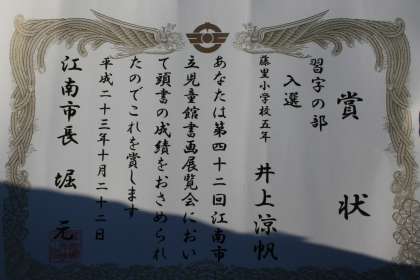 賞状
習字の部
入選
藤里小学校五年
井上涼帆
あなたは第四十二回江南市
立児童館書画展覧会におい
て頭書の成績をおさめられ
たのでこれを賞します
平成二十三年十月二十二日
江南市長 堀元